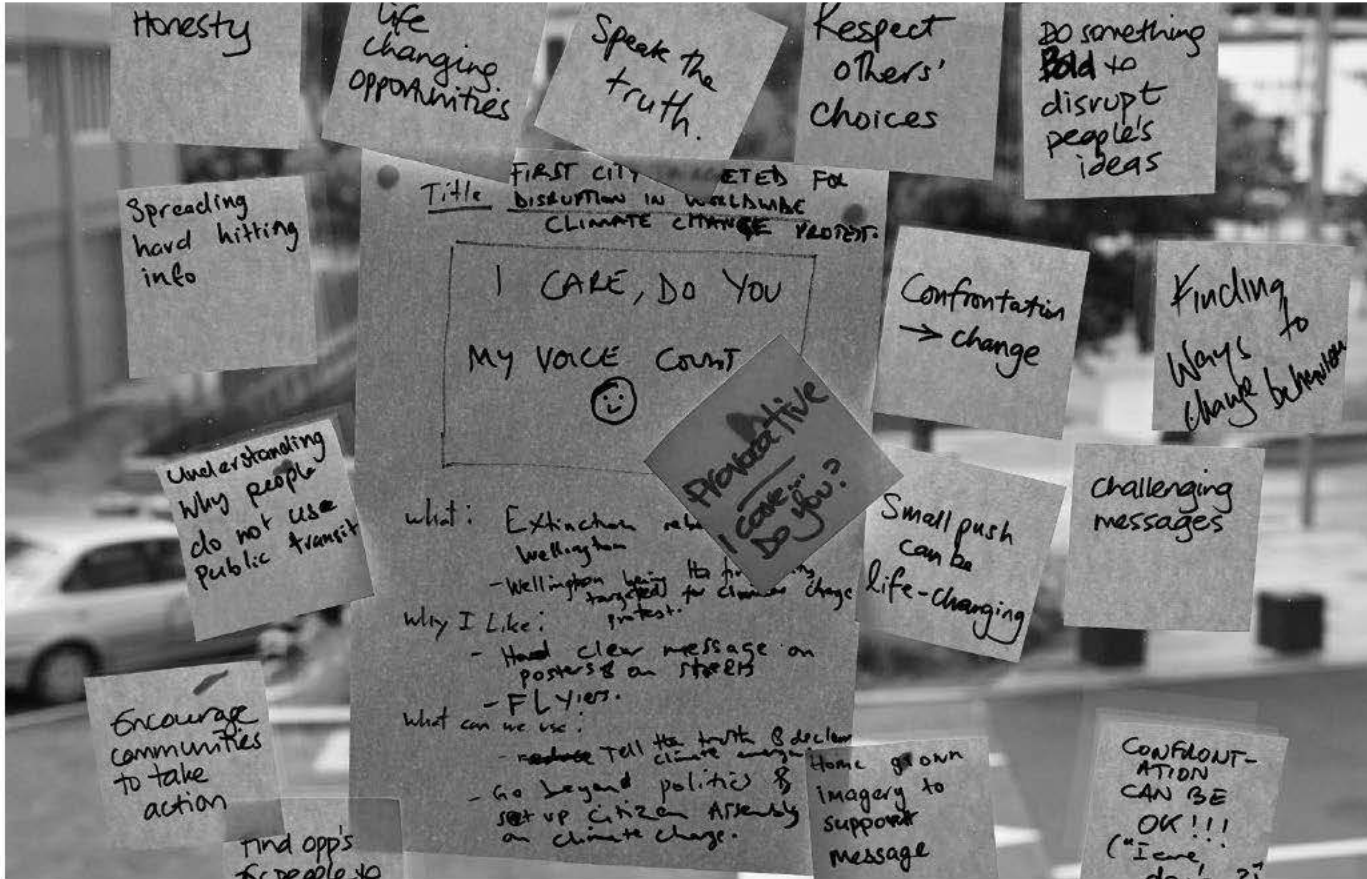 Honesty
life
changing
opportunities
Speak the
truth.
Respect
others'
choices
Do something
Bold to
disrupt
people's
ideas
Spreading
hard hitting
info
Title FIRST CITY ETED FOR
DISRUPTION IN WORLDWIDE
CLIMATE CHANGE PROTEST.
I CARE, DO YOU
MY VOICE COUNT
Provocative
I care...
Do you?
Confrontation
→ change
Finding
Ways to
change behaviour
Understanding
why people
do not use
public transit
what: Extinction
Wellington
- Wellington being the
targeted for climate change
protest.
Why I Like:
- Hard clear message on
posters & on streets
- FLYiers.
What can we use:
- Tell the truth & declare
climate
- Go beyond politics &
set up citizen Assembly
on climate change.
Small push
can be
life-changing
challenging
messages
Encourage
communities
to take
action
Find opp's
for people to
Home grown
imagery to
support
message
CONFRONT-
ATION
CAN BE
OK!!!
("I care,